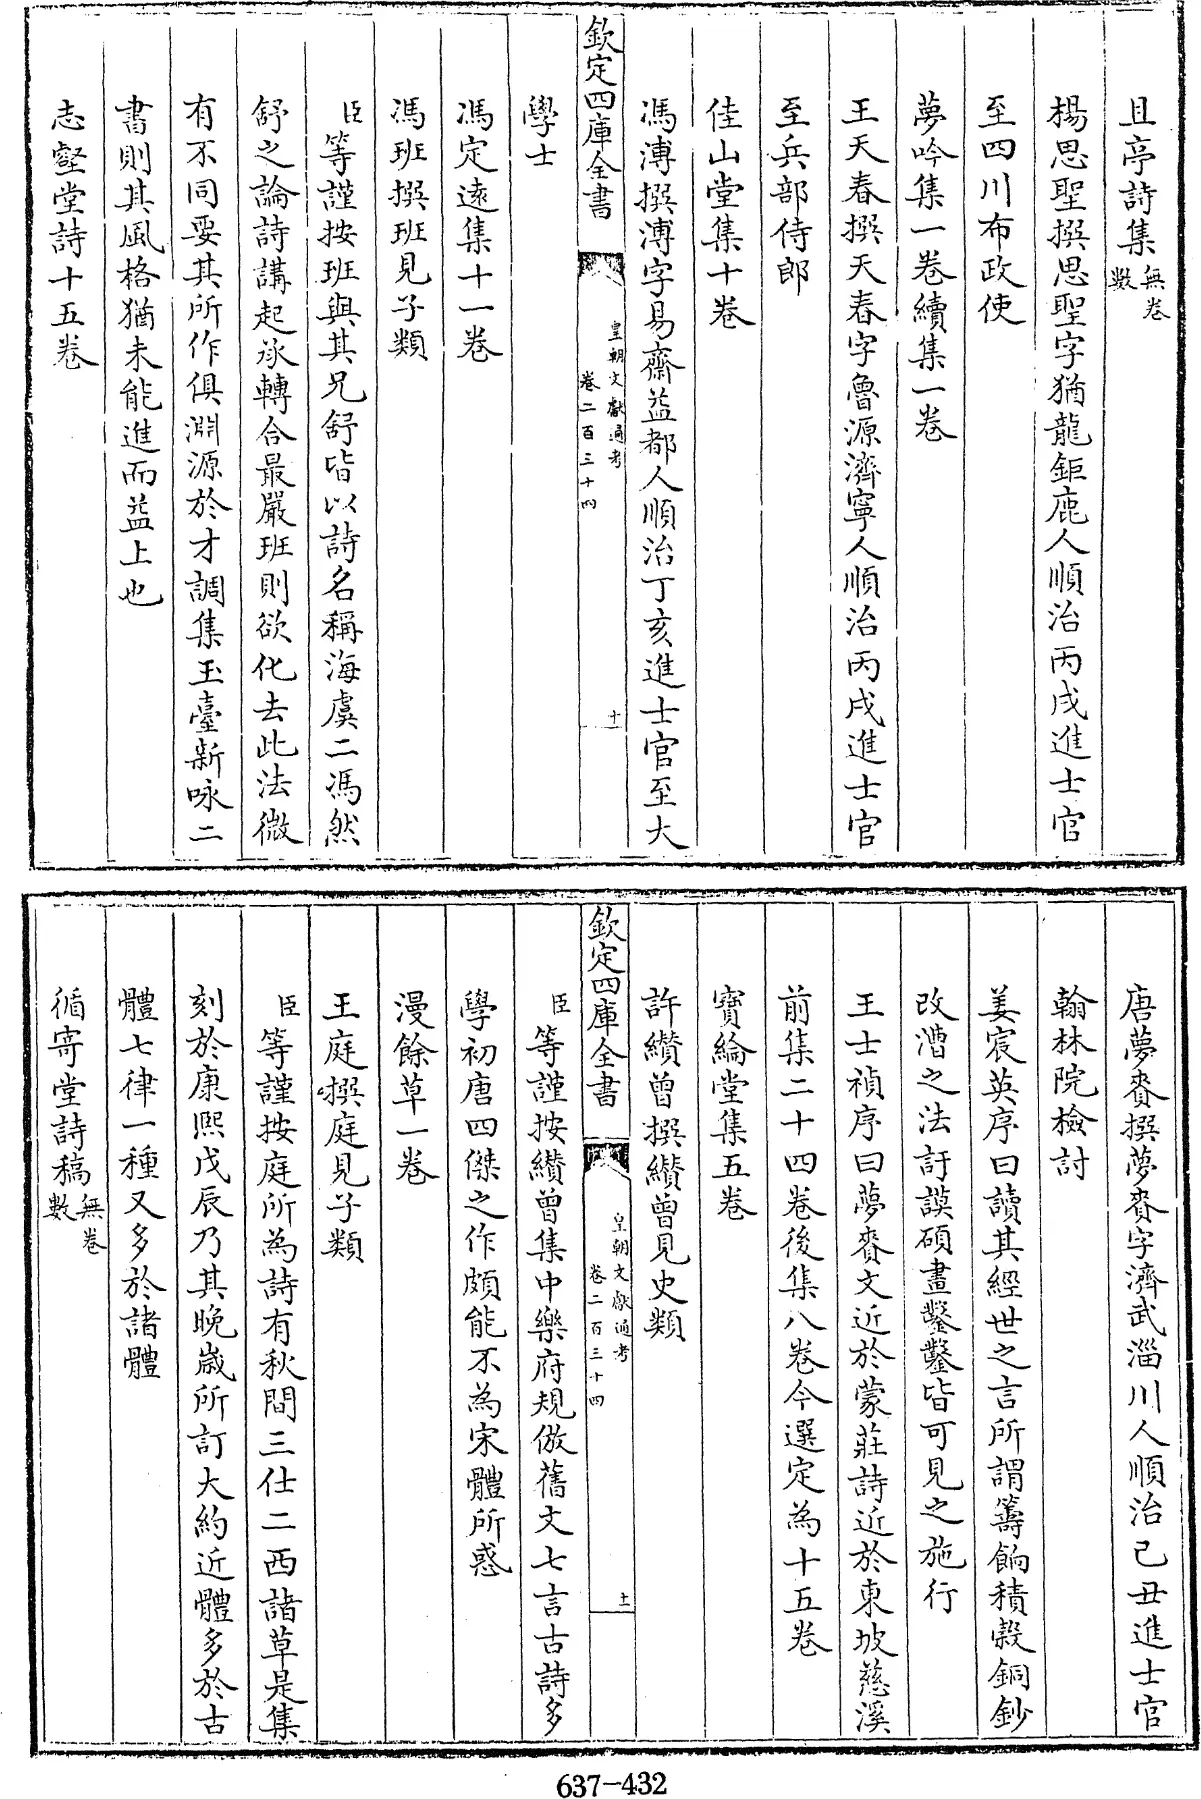 且亭詩集無卷數
楊思聖撰思聖字猶龍鉅鹿人順治丙戌進士官
至四川布政使
夢吟集一卷續集一卷
王天春撰天春字魯源濟寧人順治丙戌進士官
至兵部侍郎
佳山堂集十卷
馮溥撰溥字易齋益都人順治丁亥進士官至大
欽定四庫全書
皇朝文獻通考
卷二百三十四
十
學士
馮定遠集十一卷
馮班撰班見子類
臣等謹按班與其兄舒皆以詩名稱海虞二馮然
舒之論詩講起承轉合最嚴班則欲化去此法微
有不同要其所作俱淵源於才調集玉臺新咏二
書則其風格猶未能進而益上也
志壑堂詩十五卷
唐夢賚撰夢賚字濟武淄川人順治己丑進士官
翰林院檢討
姜宸英序曰讀其經世之言所謂籌餉積穀銅鈔
改漕之法訏謨碩畫鑿鑿皆可見之施行
王士禎序曰夢賚文近於蒙莊詩近於東坡慈溪
前集二十四卷後集八卷今選定為十五卷
寶綸堂集五卷
許纘曾撰纘曾見史類
欽定四庫全書
皇朝文獻通考
卷二百三十四
十一
臣等謹按纘曾集中樂府規倣舊文七言古詩多
學初唐四傑之作頗能不為宋體所惑
漫餘草一卷
王庭撰庭見子類
臣等謹按庭所為詩有秋間三仕二西諸草是集
刻於康熙戊辰乃其晚歲所訂大約近體多於古
體七律一種又多於諸體
循寄堂詩稿無卷數
637-432